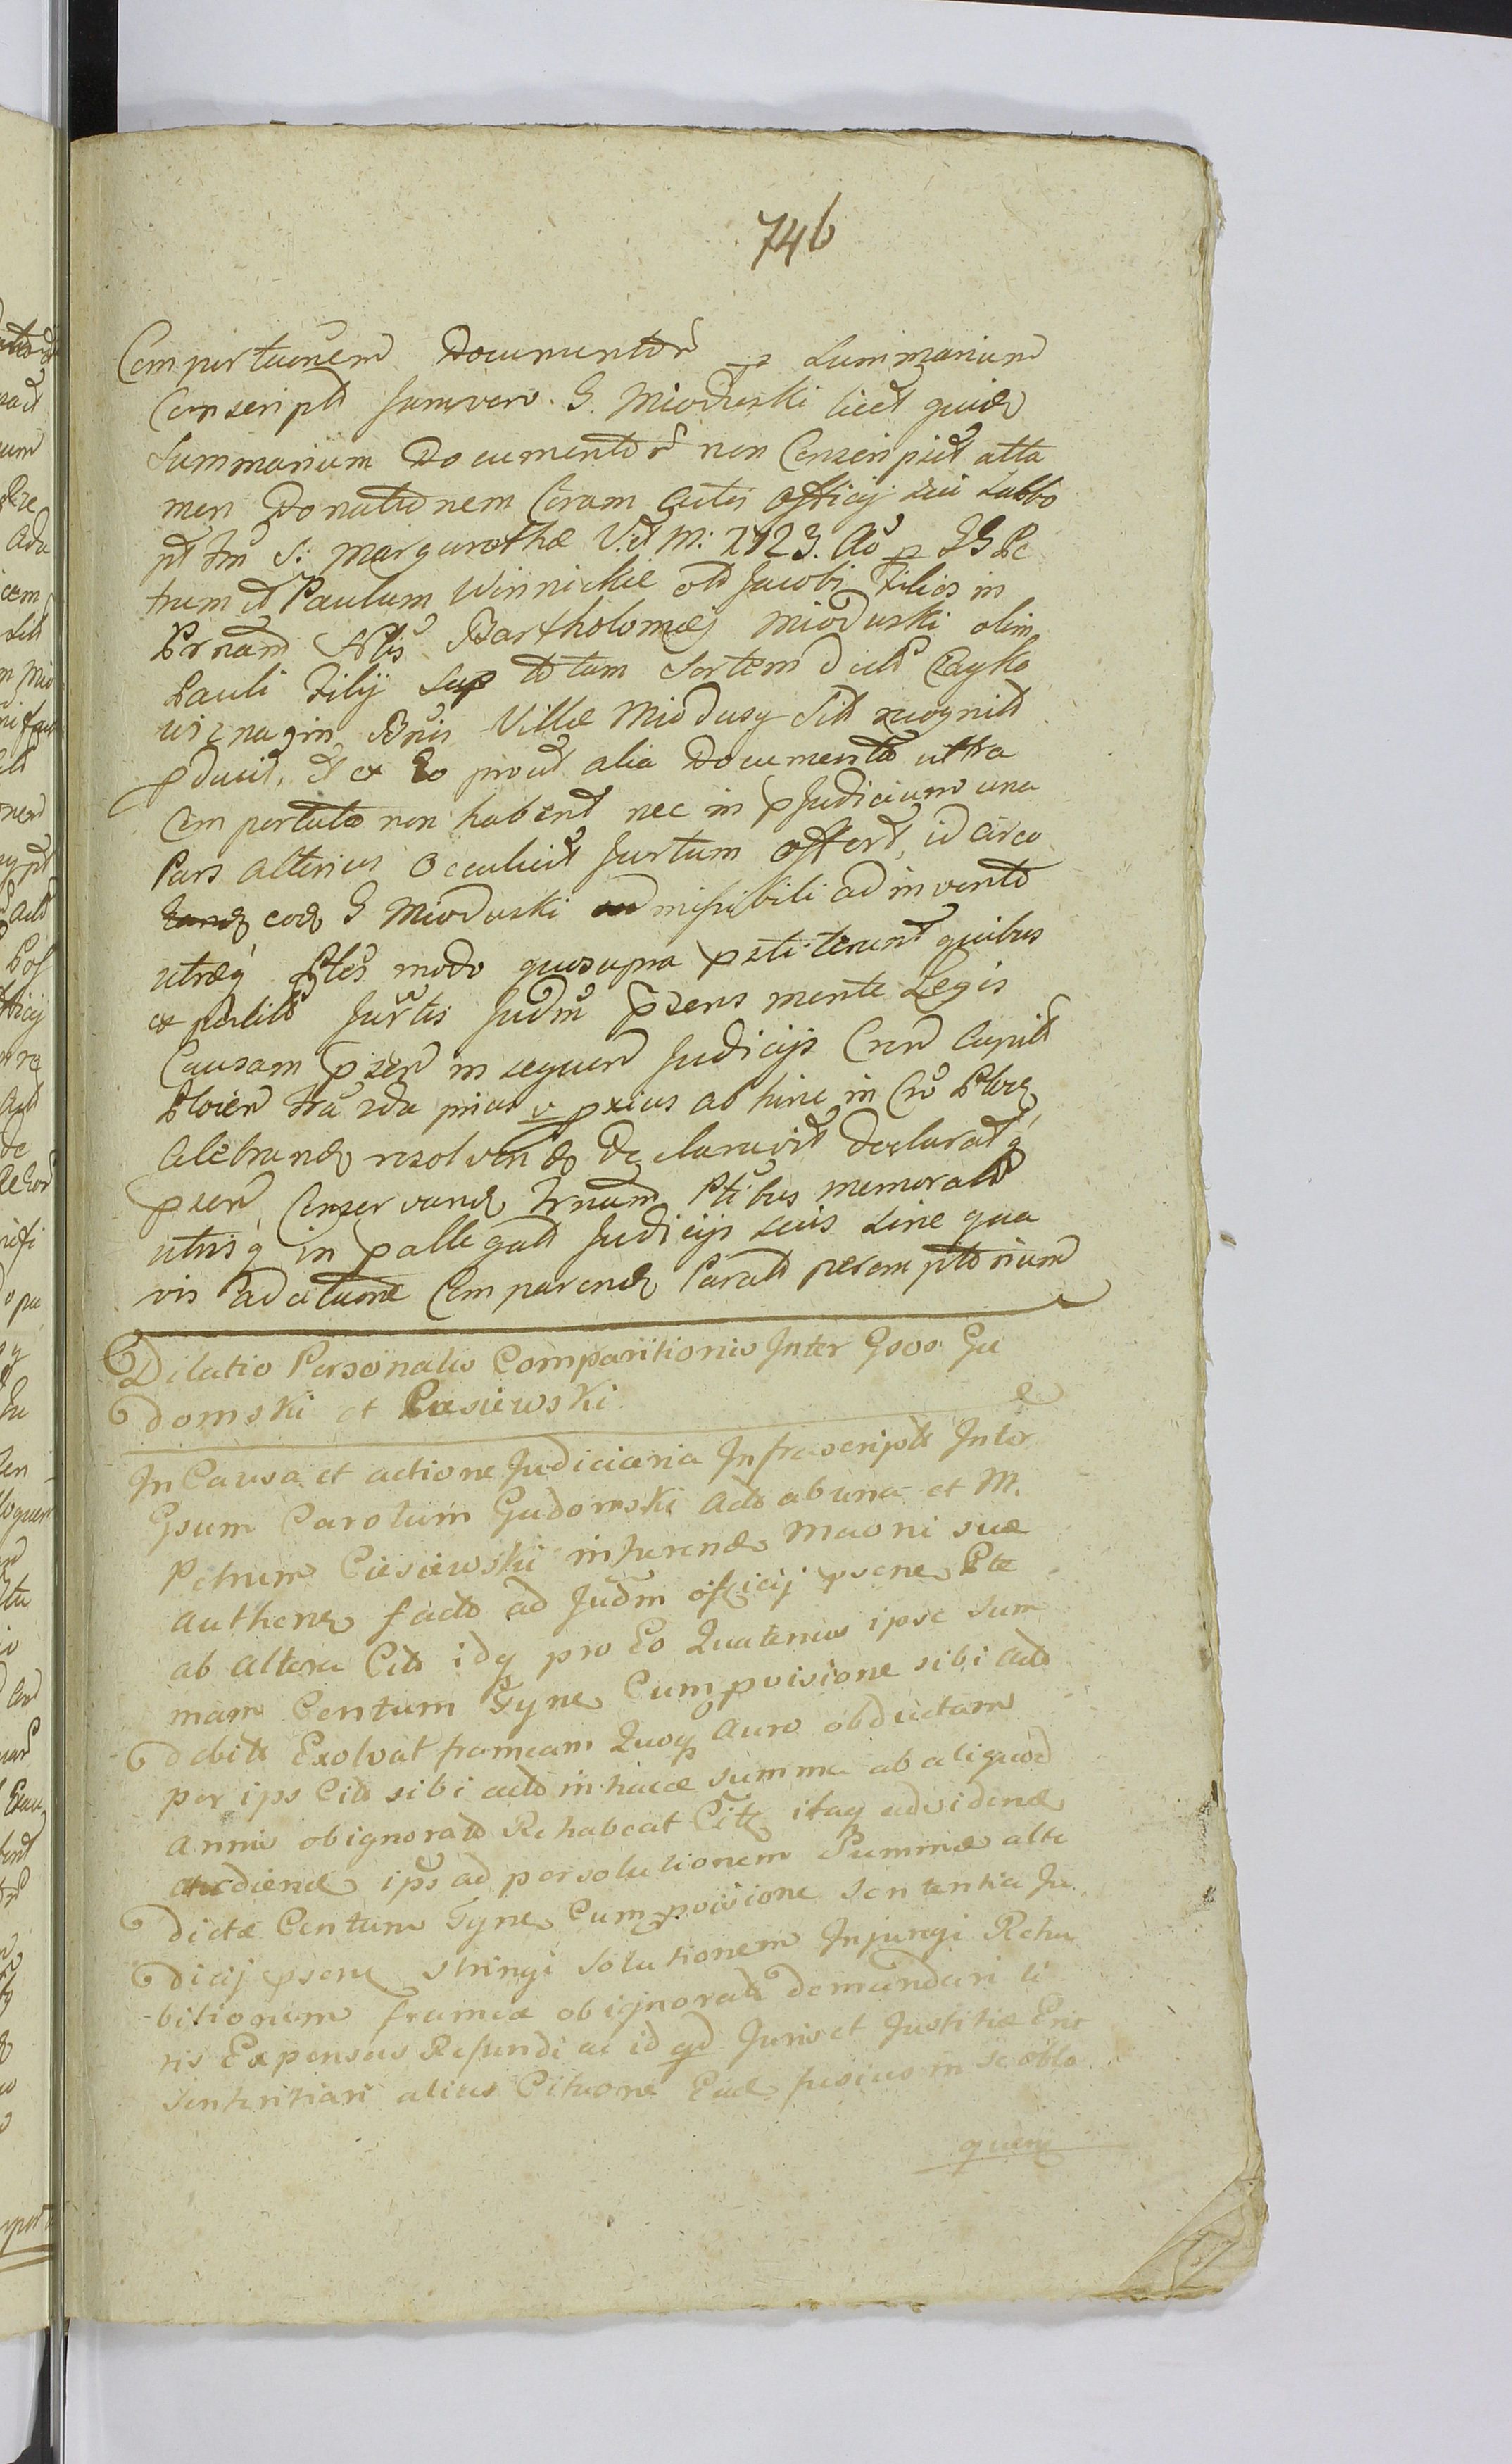 746
Comportaonem Documentor p Summarium
Conscriptt Jamvero G. Mioduski licet quide
Summarium Documentor non Conscripsit atta
men Donationem Coram actis officij sui Sabbo
pt fm S: Margarethæ V. et M: 1723. Ao p GG Pe
trum et Paulum Winnickie olt Jacobi Filios in
Prnam Nlis Bartholomæj Mioduski olim
Pauli Filij sup totam Sortem dictt
in Bnis Villæ Miodusy Sitt recognitt
pducit, et ex Eo prout alia Documenta ultra
Comportata non habent nec in pjudicium una
Pars alterius occuluit Jurtum offert, id circo
eod G Mioduski admissibili ad invento
utræq Ptes modo quo supra petiterunt quibus
ex peditt Jurtis Judm psens mente Legis
Causam psen in sequen Judicijs
prius v pxius ab hinc in
Celebrand resolven Declaravit declaratq
psen Conservand Trnum Ptibus memoratt
utrisq in pallegatt Judicijs suis sine qua
vis adcitaone Comparend Paratt peremptorium
Dilatio Personalis Comparitionis Inter Gsos Ga
domski et Ciesiewski
In Causa et actione Judiciaria Infrascriptt Inter
Gsum Carolum Gadomski Act ab una et M.
Petrum Ciesiewski in Jurend Maoni suæ
Authen facto ad Judm officij psens Pte
ab altera Citt idq pro Eo Quatenus ipse Sum
mam Centum Tyn Cum pvisione sibi Act
debitt Exolvat frameam Quoq Auro obductam
per ips Citt sibi actt in hacce summa ab aliquod
Annis obignoratt Rehabeat Citt itaq advidend
audiend ips ad persolutionem Summæ alte
dictæ Centum Tyn Cum pvisione sententia Ju
dicij psen stringi solutionem Injungi Reha
bitionem frameæ obignoratt demandari li
tis Expensas Refundi ac id qd Juris et Justitiæ Erit
sententiari alias Citaone Ead fusius in se obla
quen